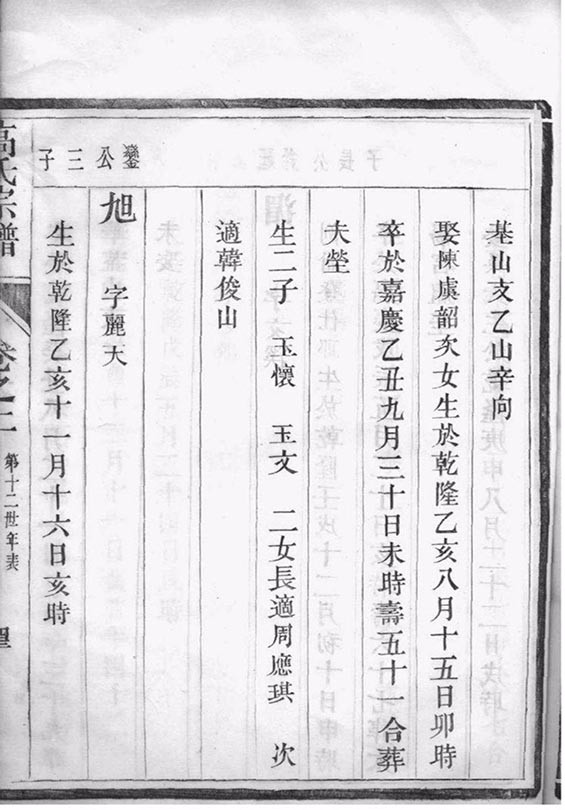 基山支乙山辛向
娶陳虞韶次女生於乾隆乙亥八月十五日卯時
卒於嘉慶乙丑九月三十日未時壽五十一合葬
夫塋
生二子 玉懷 玉文 二女長適周應琪 次
適韓俊山
鑾公三子
旭 字麗天
生於乾隆乙亥十一月十六日亥時
高氏宗譜
卷之二
第十二世年表